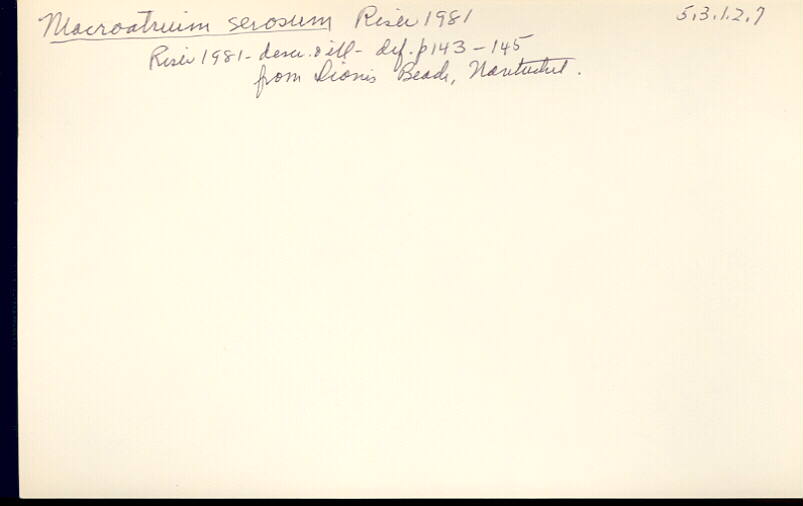 Macroatrium serosum Riser 1981 5.3.1.2.7
Riser 1981 - descr. & ill - def. p143-145
from Dionis Beach, Nantucket.